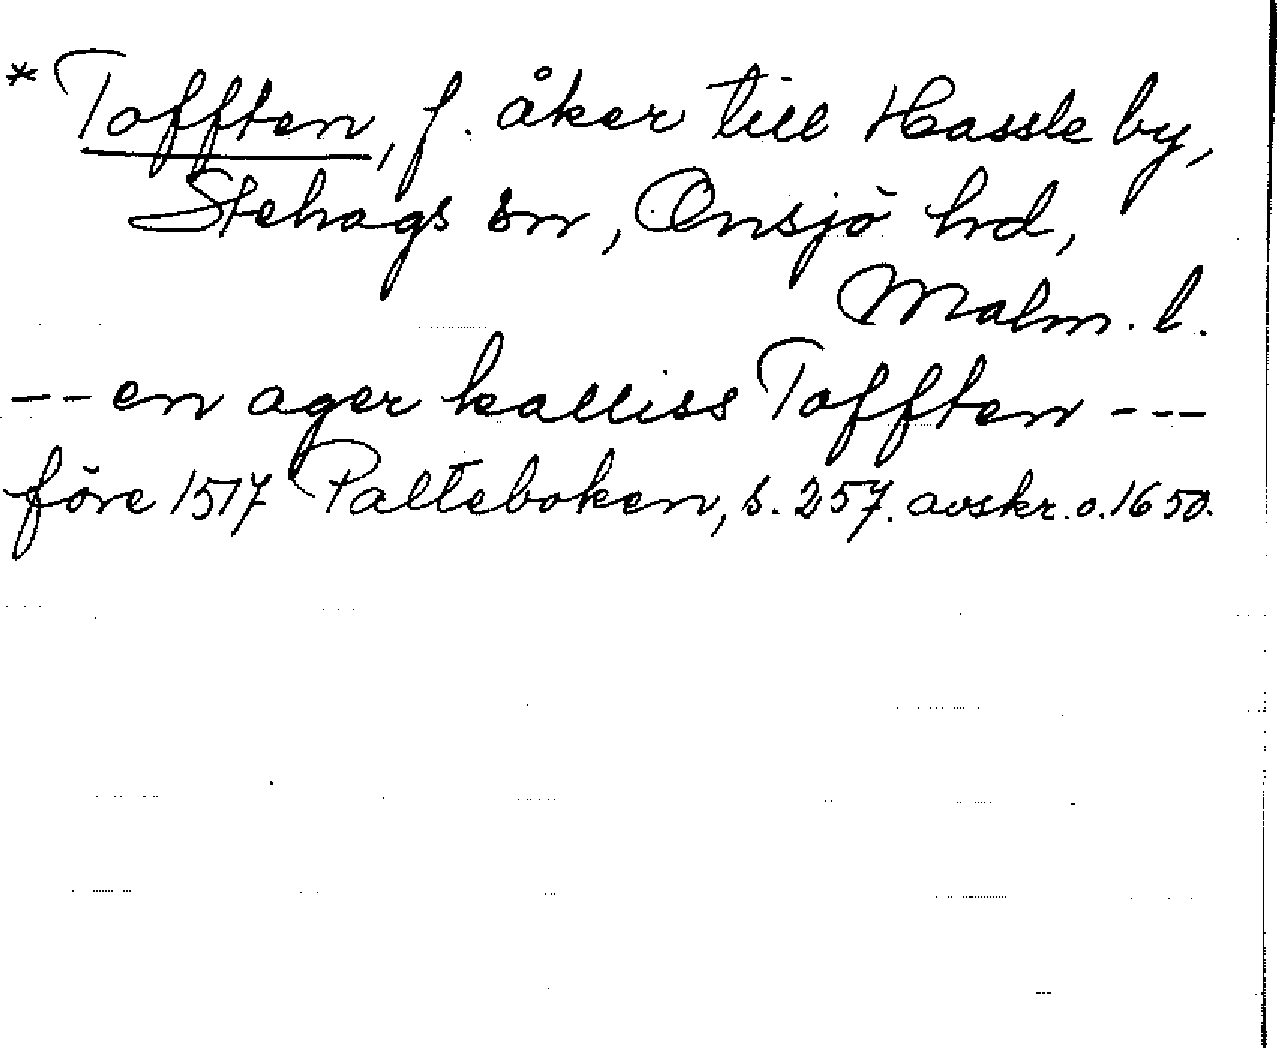 * Tofften, f. åker till Hassle by,
Stehags sn, Onsjö hrd,
Malm. l.
-- en ager kalliss Tofften ---
före 1517 Palteboken, s. 257. avskr. o. 1650.